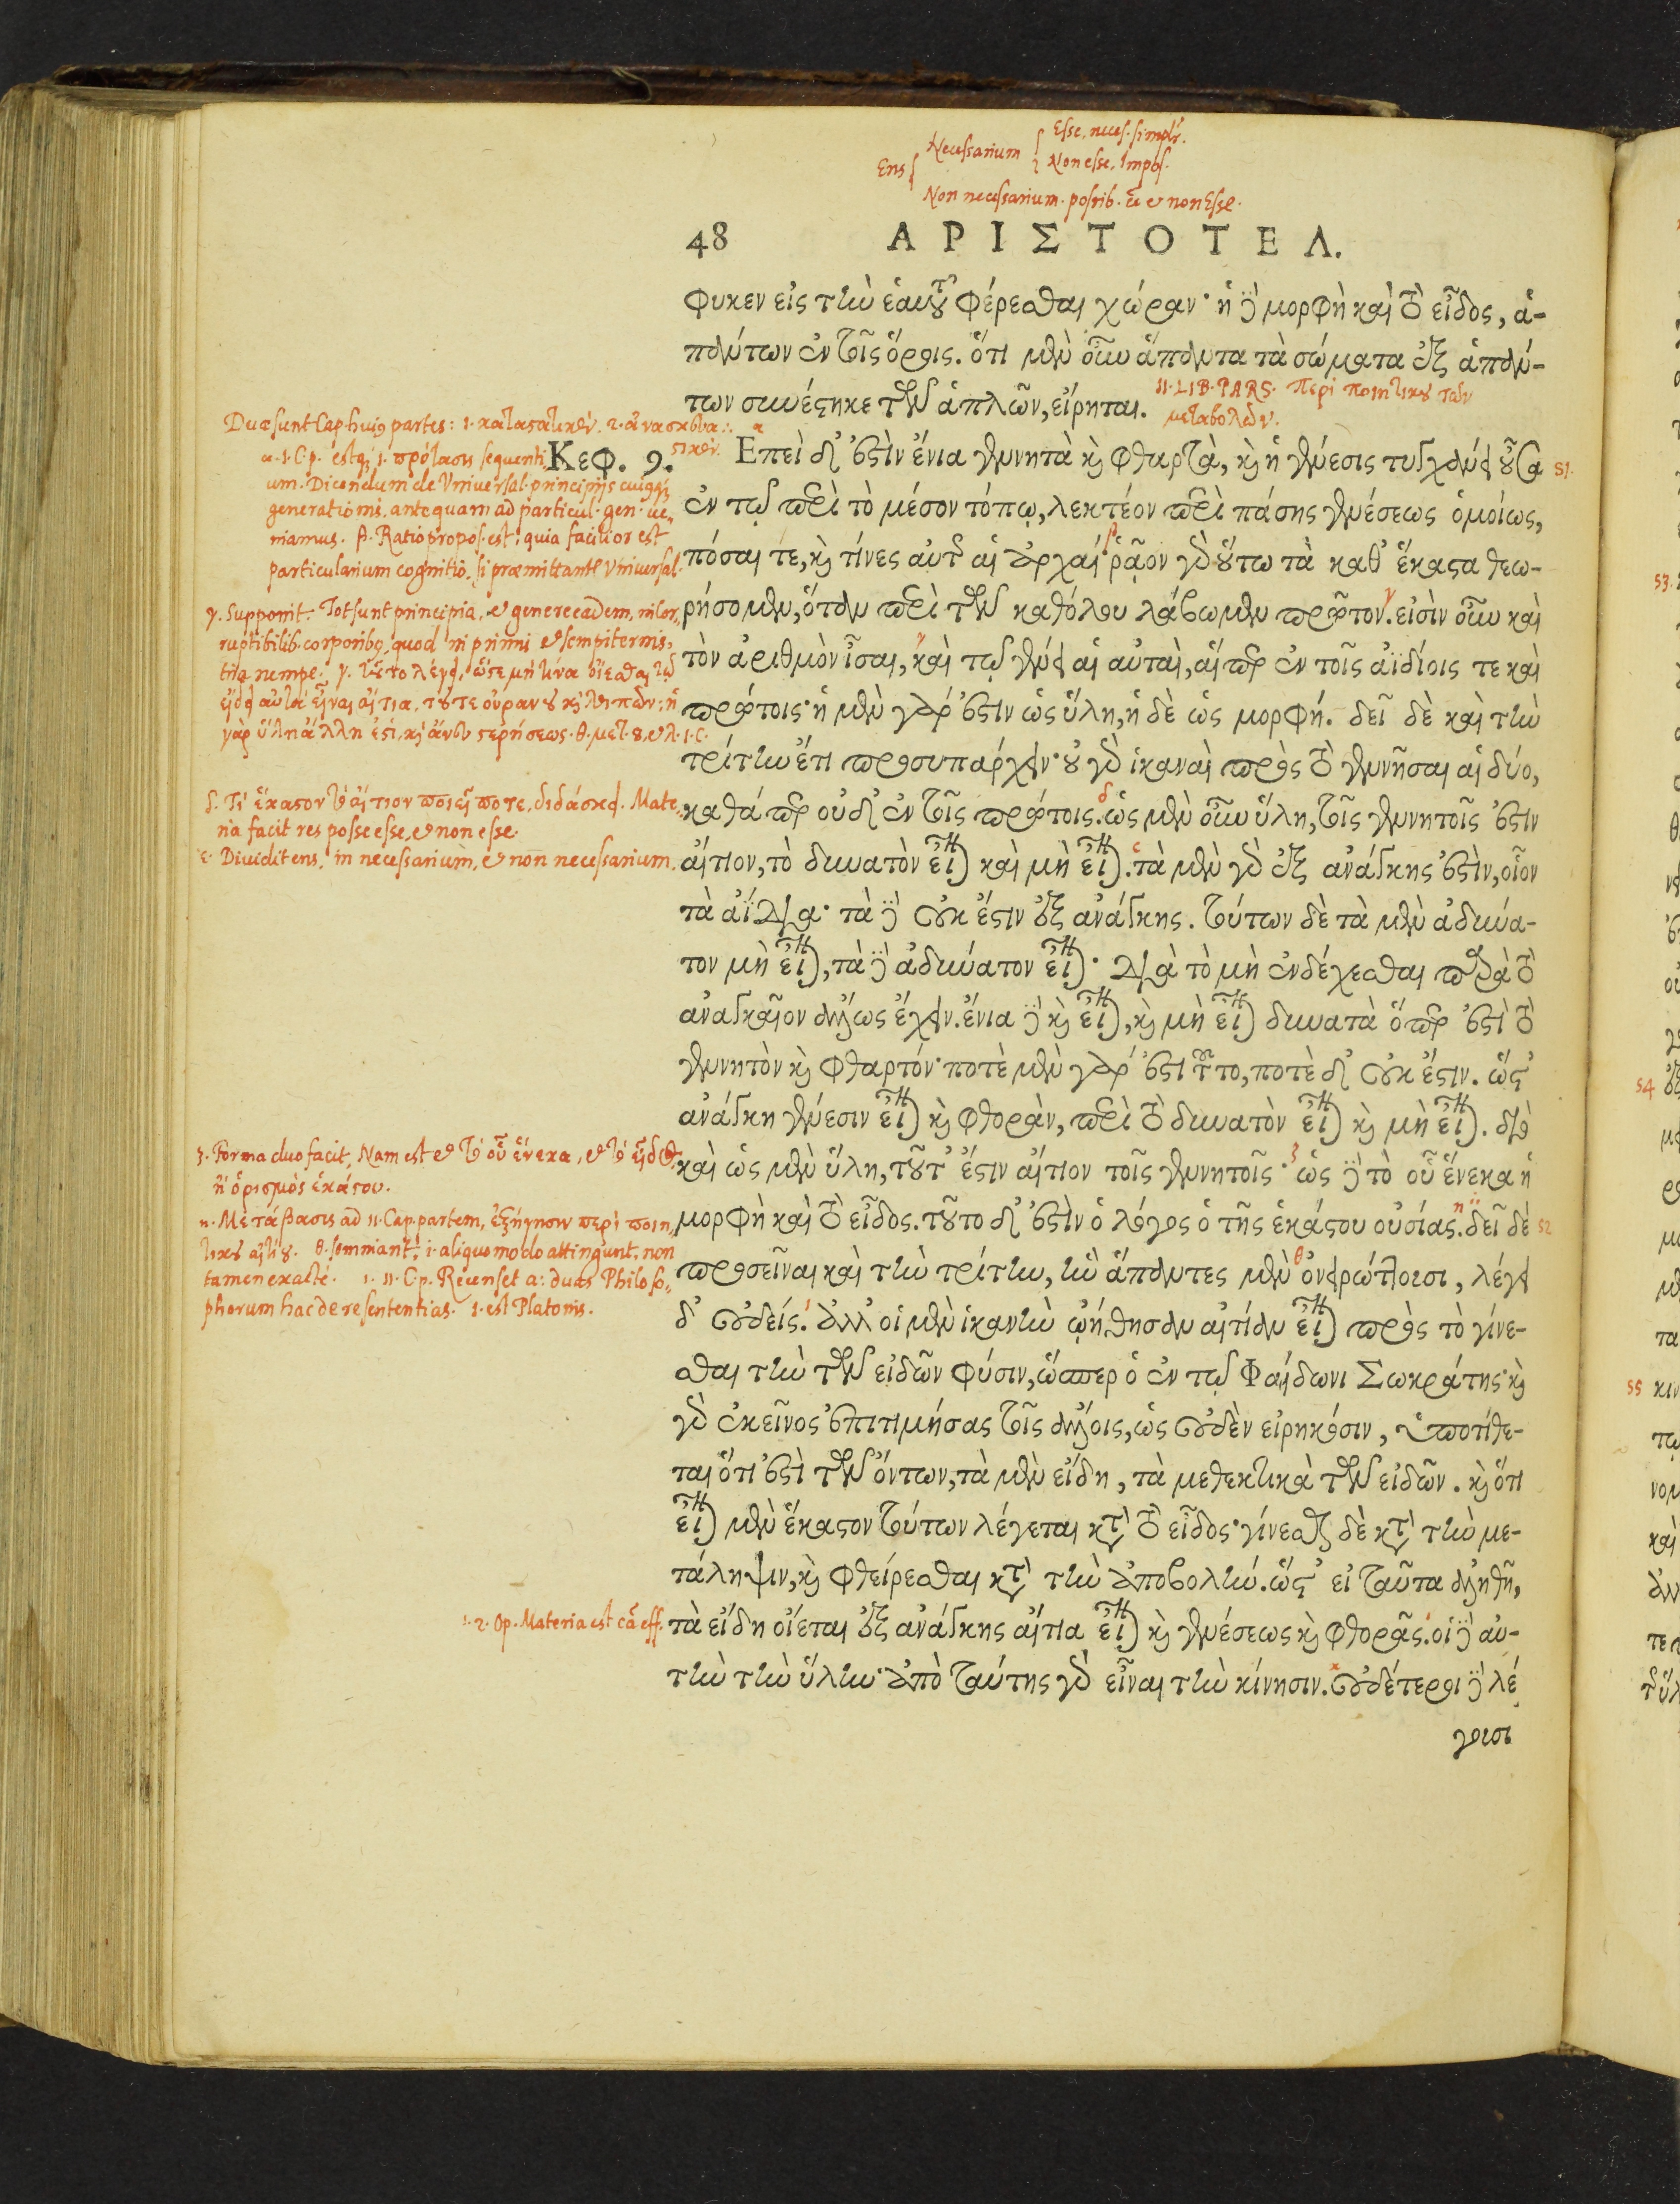 Ens { Necessarium { Esse. neces. simplr.
Non esse. Impos.
Non necessarium. possib. esse et non Esse.
48 ΑΡΙΣΤΟΤΕΛ.
φυκεν εἰς τὴν ἑαυτοῦ φέρεσθαι χώραν· ἡ δὲ μορφὴ καὶ τὸ εἶδος, ἁ-
πάντων ἐν τοῖς ὅροις. ὅτι μὲν οὖν ἅπαντα τὰ σώματα ἐξ ἁπάν-
των συνέστηκε τῶν ἁπλῶν, εἴρηται.
II. LIB. PARS. Περὶ ποιητικοῦ τῶν
μεταβολῶν.
Duæ sunt Cap. huius partes: 1. κατασκατικόν. 2. ἀνασκευα-
στικόν.
Κεφ. 9. Επεὶ δ' ἐστὶν ἔνια γεννητὰ καὶ φθαρτὰ, καὶ ἡ γένεσις τυγχάνει οὖσα 51
ἐν τῷ περὶ τὸ μέσον τόπῳ, λεκτέον περὶ πάσης γενέσεως ὁμοίως,
πόσαι τε, καὶ τίνες αὐτῆς αἱ ἀρχαί. ῥᾷον γὰρ οὕτω τὰ καθ' ἕκαστα θεω-
ρήσομεν, ὅταν περὶ τῶν καθόλου λάβωμεν πρῶτον. εἰσὶν οὖν καὶ
τὸν ἀριθμὸν ἴσαι, καὶ τῷ γένει αἱ αὐταὶ, αἵπερ ἐν τοῖς ἀϊδίοις τε καὶ
πρώτοις· ἡ μὲν γάρ ἐστιν ὡς ὕλη, ἡ δὲ ὡς μορφή. δεῖ δὲ καὶ τὴν
τρίτην ἔτι προσυπάρχειν· οὐ γὰρ ἱκαναὶ πρὸς τὸ γεννῆσαι αἱ δύο,
καθάπερ οὐδ' ἐν τοῖς πρώτοις. ὡς μὲν οὖν ὕλη, τοῖς γεννητοῖς ἐστιν
αἴτιον, τὸ δυνατὸν εἶναι καὶ μὴ εἶναι. τὰ μὲν γὰρ ἐξ ἀνάγκης ἐστὶν, οἷον
τὰ ἀΐδια· τὰ δὲ οὐκ ἔστιν ἐξ ἀνάγκης. τούτων δὲ τὰ μὲν ἀδύνα-
τον μὴ εἶναι, τὰ δὲ ἀδύνατον εἶναι· διὰ τὸ μὴ ἐνδέχεσθαι παρὰ τὸ
ἀναγκαῖον ἄλλως ἔχειν. ἔνια δὲ καὶ εἶναι, καὶ μὴ εἶναι δυνατὰ ὅπερ ἐστὶ τὸ
γεννητὸν καὶ φθαρτόν· ποτὲ μὲν γάρ ἐστι τοῦτο, ποτὲ δ' οὐκ ἔστιν. ὥστ'
ἀνάγκη γένεσιν εἶναι καὶ φθορὰν, περὶ τὸ δυνατὸν εἶναι καὶ μὴ εἶναι. διὸ
καὶ ὡς μὲν ὕλη, τοῦτ' ἔστιν αἴτιον τοῖς γεννητοῖς· ὡς δὲ τὸ οὗ ἕνεκα ἡ
μορφὴ καὶ τὸ εἶδος. τοῦτο δ' ἐστὶν ὁ λόγος ὁ τῆς ἑκάστου οὐσίας. δεῖ δὲ 52
προσεῖναι καὶ τὴν τρίτην, ἣν ἅπαντες μὲν ὀνειρώττουσι, λέγει
δ' οὐδείς. ἀλλ' οἱ μὲν ἱκανὴν ᾠήθησαν αἰτίαν εἶναι πρὸς τὸ γίνε-
σθαι τὴν τῶν εἰδῶν φύσιν, ὥσπερ ὁ ἐν τῷ Φαίδωνι Σωκράτης· καὶ
γὰρ ἐκεῖνος ἐπιτιμήσας τοῖς ἄλλοις, ὡς οὐδὲν εἰρηκόσιν, ὑποτίθε-
ται ὅτι ἐστὶ τῶν ὄντων, τὰ μὲν εἴδη, τὰ μεθεκτικὰ τῶν εἰδῶν. καὶ ὅτι
εἶναι μὲν ἕκαστον τούτων λέγεται κατὰ τὸ εἶδος· γίνεσθαι δὲ κατὰ τὴν με-
τάληψιν, καὶ φθείρεσθαι κατὰ τὴν ἀποβολήν. ὥστ' εἰ ταῦτα ἀληθῆ,
τὰ εἴδη οἴεται ἐξ ἀνάγκης αἴτια εἶναι καὶ γενέσεως καὶ φθορᾶς. οἱ δὲ αὐ-
τὴν τὴν ὕλην· ἀπὸ ταύτης γὰρ εἶναι τὴν κίνησιν. οὐδέτεροι δὲ λέ
γουσι
α. 1. Cp. estque 1. πρότασις sequenti-
um. Dicendum de Vniversal. principijs cuiusque
generationis. antequam ad particul. gen. ve-
niamus. β. Ratio propos. est: quia facilior est
particularium cognitio, si præmittantur Vniversal.
γ. Supponit. Tot sunt principia, et genere eadem, in cor-
ruptibilib. corporibus, quod in primis et sempiternis,
tria nempe. γ. τοῦτο λέγει, ὥστε μή τινα οἴεσθαι τῷ
εἴδει αὐτὰ εἶναι αἴτια, τοῦτε οὐρανοῦ καὶ λοιπῶν· ἡ
γὰρ ὕλη ἄλλη ἐστί, καὶ ἄνευ στερήσεως. θ. μετ. 8. et λ. 1. c.
δ. Τί ἕκαστον τὸ αἴτιον ποιεῖ ποτε, διδάσκει. Mate-
ria facit res posse esse, et non esse.
ε. Diuidit ens, in necessarium, et non necessarium.
ζ. Forma duo facit, Nam est et τὸ οὗ ἕνεκα, et τὸ εἶδος
ἢ ὁρισμὸς ἑκάστου.
η. Μετάβασις ad II. Cap. partem, ἐξήγησιν περὶ ποιη-
τικοῦ αἰτίου. θ. somniant, i. aliquomodo attingunt, non
tamen exactè. ι. II. Cp. Recenset a: duas Philoso-
phorum hac de re sententias. 1. est Platonis.
2. Op. Materia est cã eff.